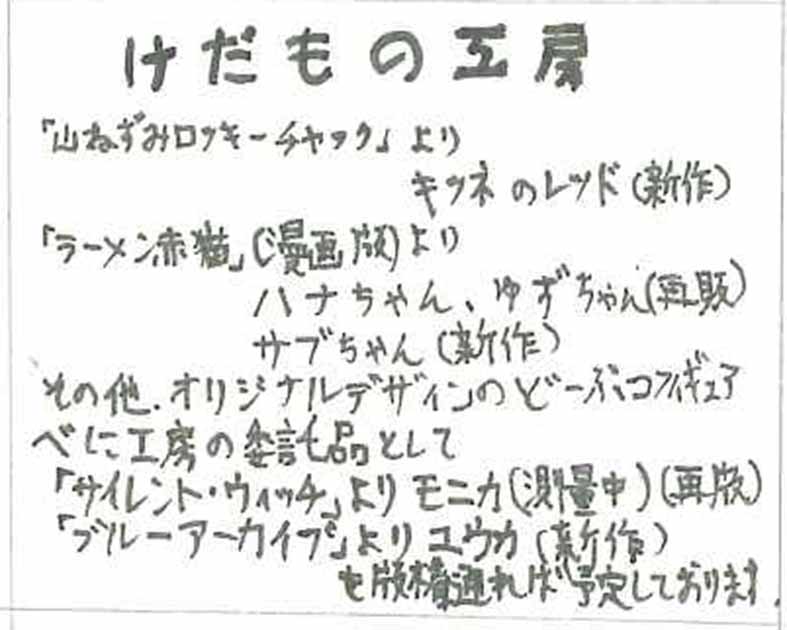 けだもの工房
「山ねずみロッキーチャック」より
キツネのレッド(新作)
「ラーメン赤猫」(漫画版)より
ハナちゃん、ゆずちゃん(再販)
サブちゃん(新作)
その他.オリジナルデザインのどーぶつフィギュア
べに工房の委託品として
「サイレント・ウィッチ」よりモニカ(測量中)(再版)
「ブルーアーカイブ」よりユウカ(新作)
も版権通れば予定しております.